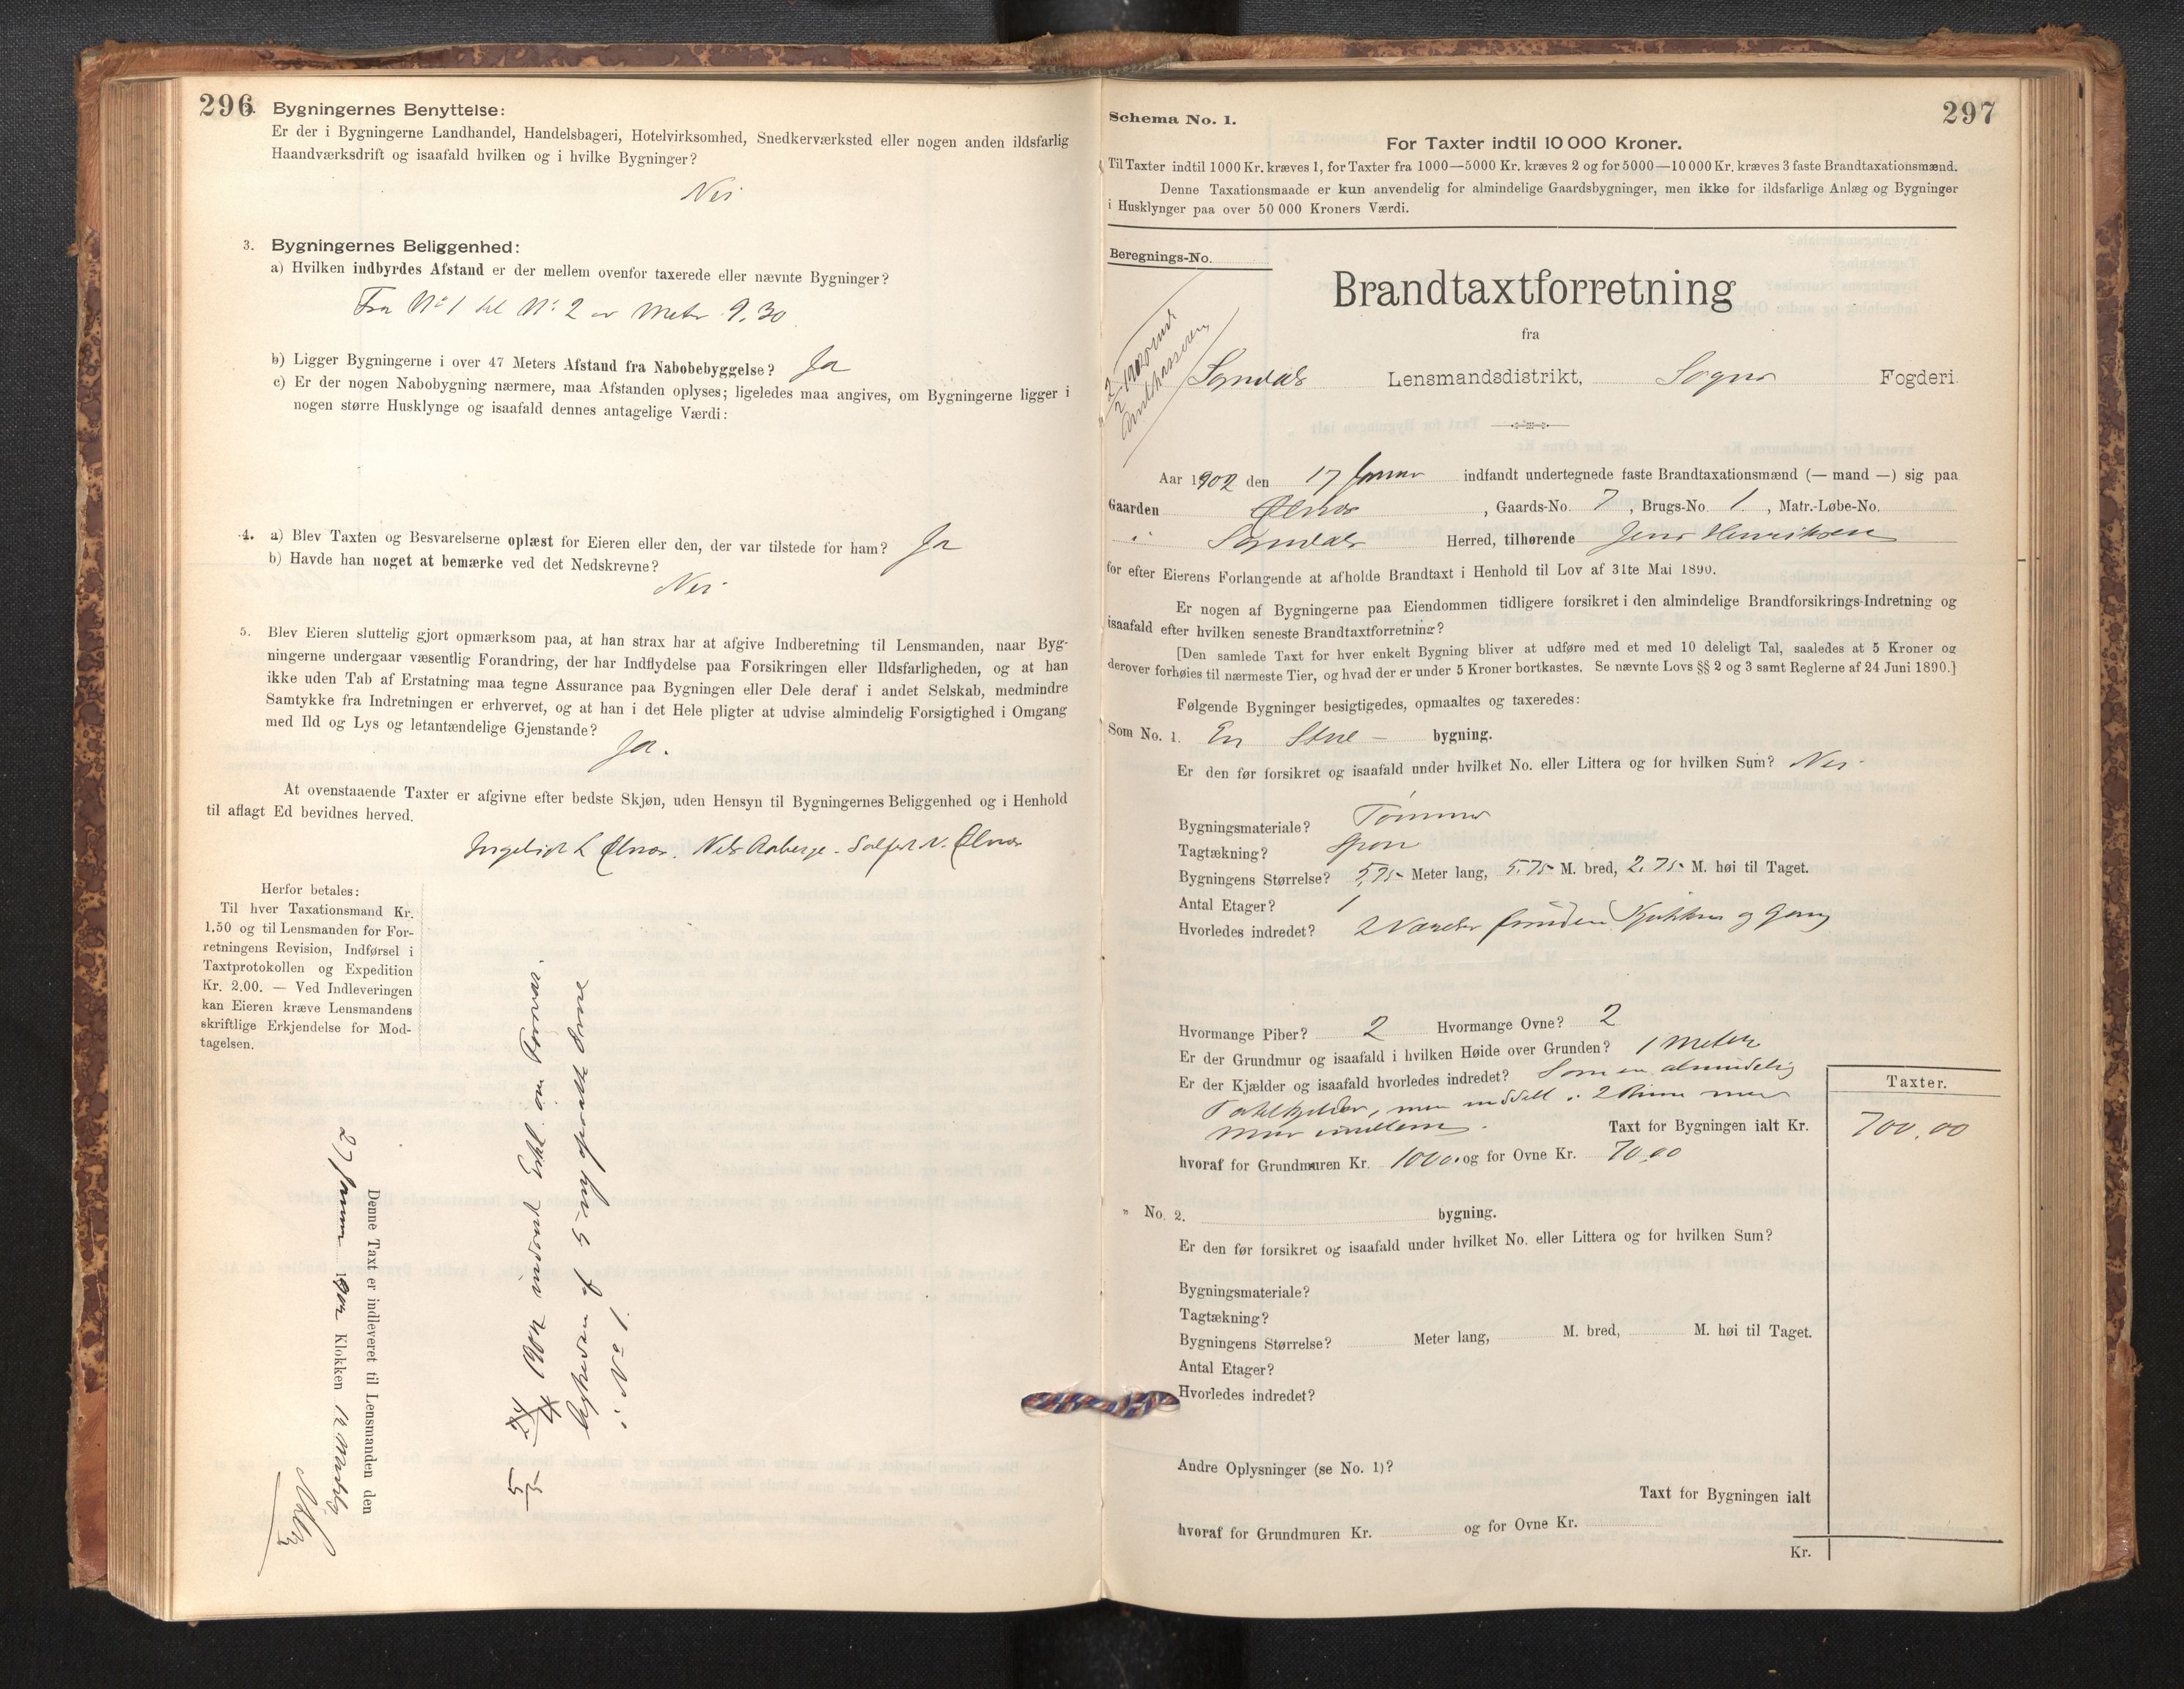 296
2. Bygningernes Benyttelse:
Er der i Bygningerne Landhandel, Handelsbageri, Hotelvirksomhed, Snedkerværksted eller nogen anden ildsfarlig
Haandværksdrift og isaafald hvilken og i hvilke Bygninger?
Nei
3. Bygningernes Beliggenhed:
a) Hvilken indbyrdes Afstand er der mellem ovenfor taxerede eller nævnte Bygninger?
Fra No 1 til No 2 er Meter 9.30
b) Ligger Bygningerne i over 47 Meters Afstand fra Nabobebyggelse? Ja
c) Er der nogen Nabobygning nærmere, maa Afstanden oplyses; ligeledes maa angives, om Bygningerne ligger i
nogen større Husklynge og isaafald dennes antagelige Værdi:
4. a) Blev Taxten og Besvarelserne oplæst for Eieren eller den, der var tilstede for ham? Ja
b) Havde han noget at bemærke ved det Nedskrevne?
Nei
5. Blev Eieren sluttelig gjort opmærksom paa, at han strax har at afgive Indberetning til Lensmanden, naar Byg-
ningerne undergaar væsentlig Forandring, der har Indflydelse paa Forsikringen eller Ildsfarligheden, og at han
ikke uden Tab af Erstatning maa tegne Assurance paa Bygningen eller Dele deraf i andet Selskab, medmindre
Samtykke fra Indretningen er erhvervet, og at han i det Hele pligter at udvise almindelig Forsigtighed i Omgang
med Ild og Lys og letantændelige Gjenstande?
Ja.
At ovenstaaende Taxter er afgivne efter bedste Skjøn, uden Hensyn til Bygningernes Beliggenhed og i Henhold
til aflagt Ed bevidnes herved.
L Ølnæs. Nils Aaberge. N. Ølnæs
Herfor betales:
Til hver Taxationsmand Kr.
1.50 og til Lensmanden for For-
retningens Revision, Indførsel i
Taxtprotokollen og Expedition
Kr. 2.00. — Ved Indleveringen
kan Eieren kræve Lensmandens
skriftlige Erkjendelse for Mod-
tagelsen.
Denne Taxt er indleveret til Lensmanden den
27 Januar 1902 Klokken 12 Middag
1902 indsendt Erkl. om
af 5 ny opsatte Ovne
i No 1.
297
Schema No. 1.
For Taxter indtil 10 000 Kroner.
Til Taxter indtil 1000 Kr. kræves 1, for Taxter fra 1000—5000 Kr. kræves 2 og for 5000—10 000 Kr. kræves 3 faste Brandtaxationsmænd.
Denne Taxationsmaade er kun anvendelig for almindelige Gaardsbygninger, men ikke for ildsfarlige Anlæg og Bygninger
i Husklynger paa over 50 000 Kroners Værdi.
Beregnings-No.
Brandtaxtforretning
fra
Sogndals Lensmandsdistrikt, Sogns Fogderi
Aar 1902 den 17 Januar indfandt undertegnede faste Brandtaxationsmænd (— mand —) sig paa
Gaarden Ølnæs, Gaards-No. 7, Brugs-No. 1, Matr.-Løbe-No.
i Sogndals Herred, tilhørende Jens Henriksen
for efter Eierens Forlangende at afholde Brandtaxt i Henhold til Lov af 31te Mai 1890.
Er nogen af Bygningerne paa Eiendommen tidligere forsikret i den almindelige Brandforsikrings-Indretning og
isaafald efter hvilken seneste Brandtaxtforretning?
[Den samlede Taxt for hver enkelt Bygning bliver at udføre med et med 10 deleligt Tal, saaledes at 5 Kroner og
derover forhøies til nærmeste Tier, og hvad der er under 5 Kroner bortkastes. Se nævnte Lovs §§ 2 og 3 samt Reglerne af 24 Juni 1890.]
Følgende Bygninger besigtigedes, opmaaltes og taxeredes:
Som No. 1. En Stue – bygning.
Er den før forsikret og isaafald under hvilket No. eller Littera og for hvilken Sum? Nei
Bygningsmateriale? Tømmer
Tagtækning? Spon
Bygningens Størrelse? 5,75 Meter lang, 5,75 M. bred, 2,75 M. høi til Taget.
Antal Etager? 1
Hvorledes indredet? 2 Værelser foruden Kjøkken og Gang
Hvormange Piber? 2 Hvormange Ovne? 2
Er der Grundmur og isaafald i hvilken Høide over Grunden? 1 Meter
Er der Kjælder og isaafald hvorledes indredet? Som en almindelig
men inddelt i 2 Rum med
Mur imellem.
Taxter.
Taxt for Bygningen ialt Kr. 700,00
hvoraf for Grundmuren Kr. 100.00 og for Ovne Kr. 70,00
" No. 2. bygning.
Er den før forsikret og isaafald under hvilket No. eller Littera og for hvilken Sum?
Bygningsmateriale?
Tagtækning?
Bygningens Størrelse? Meter lang, M. bred, M. høi til Taget.
Antal Etager?
Hvorledes indredet?
Andre Oplysninger (se No. 1)?
Taxt for Bygningen ialt
hvoraf for Grundmuren Kr. og for Ovne Kr.
Kr.